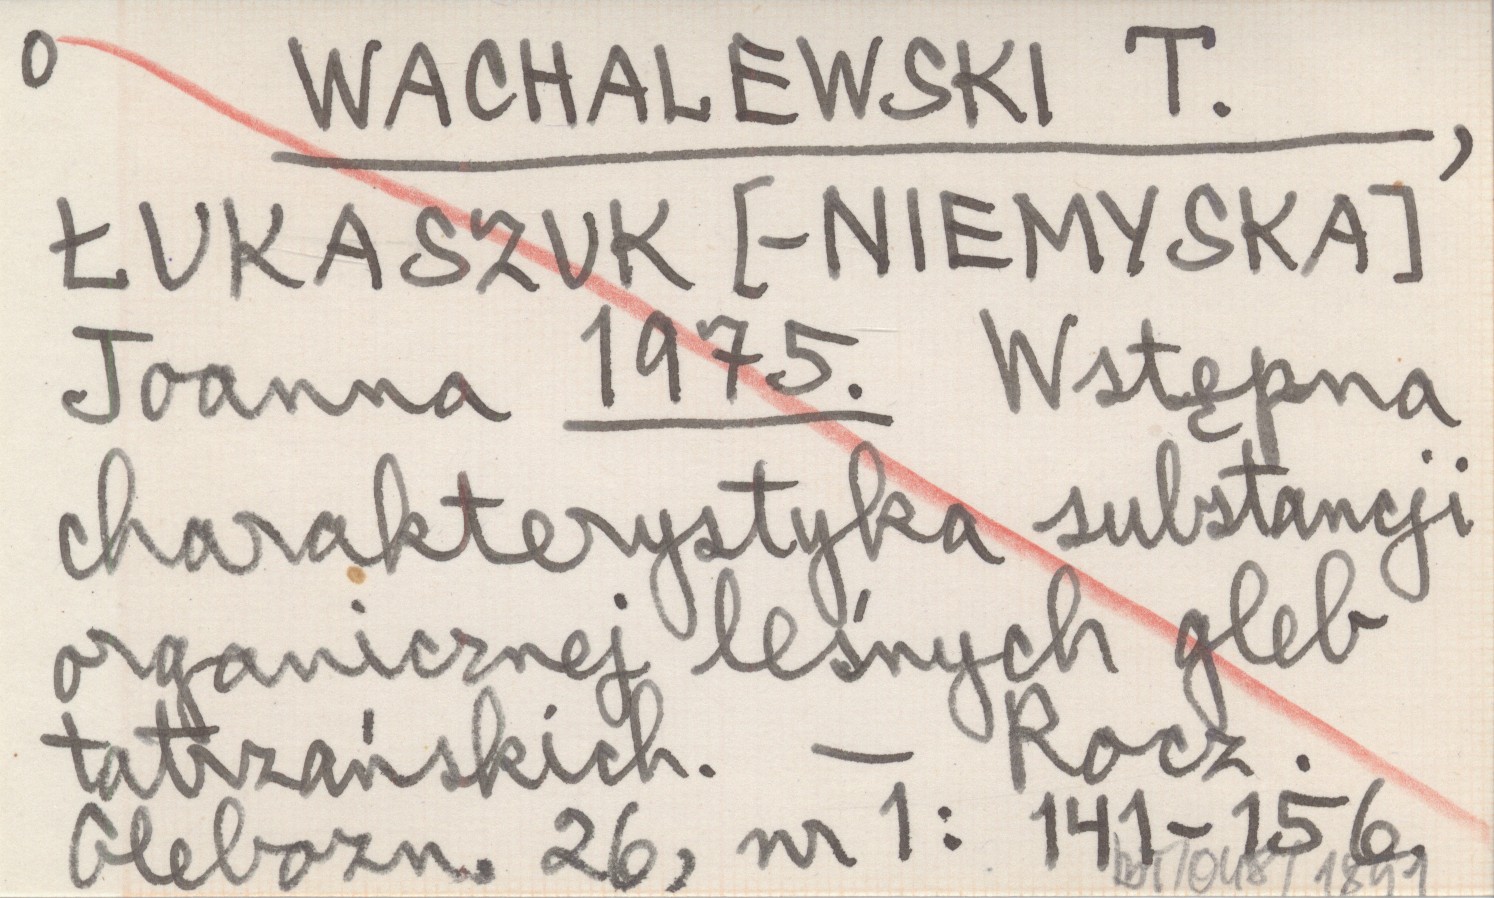 o WACHALEWSKI T.,
ŁUKASZUK [-NIEMYSKA]
Joanna 1975. Wstępna
charakterystyka substancji
organicznej leśnych gleb
tatrzańskich. — Rocz.
Glebozn. 26, nr 1: 141-156.